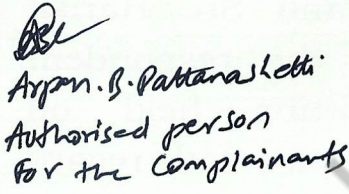 Arpan.B.Pattanashetti
Authorised person
For the Complainants